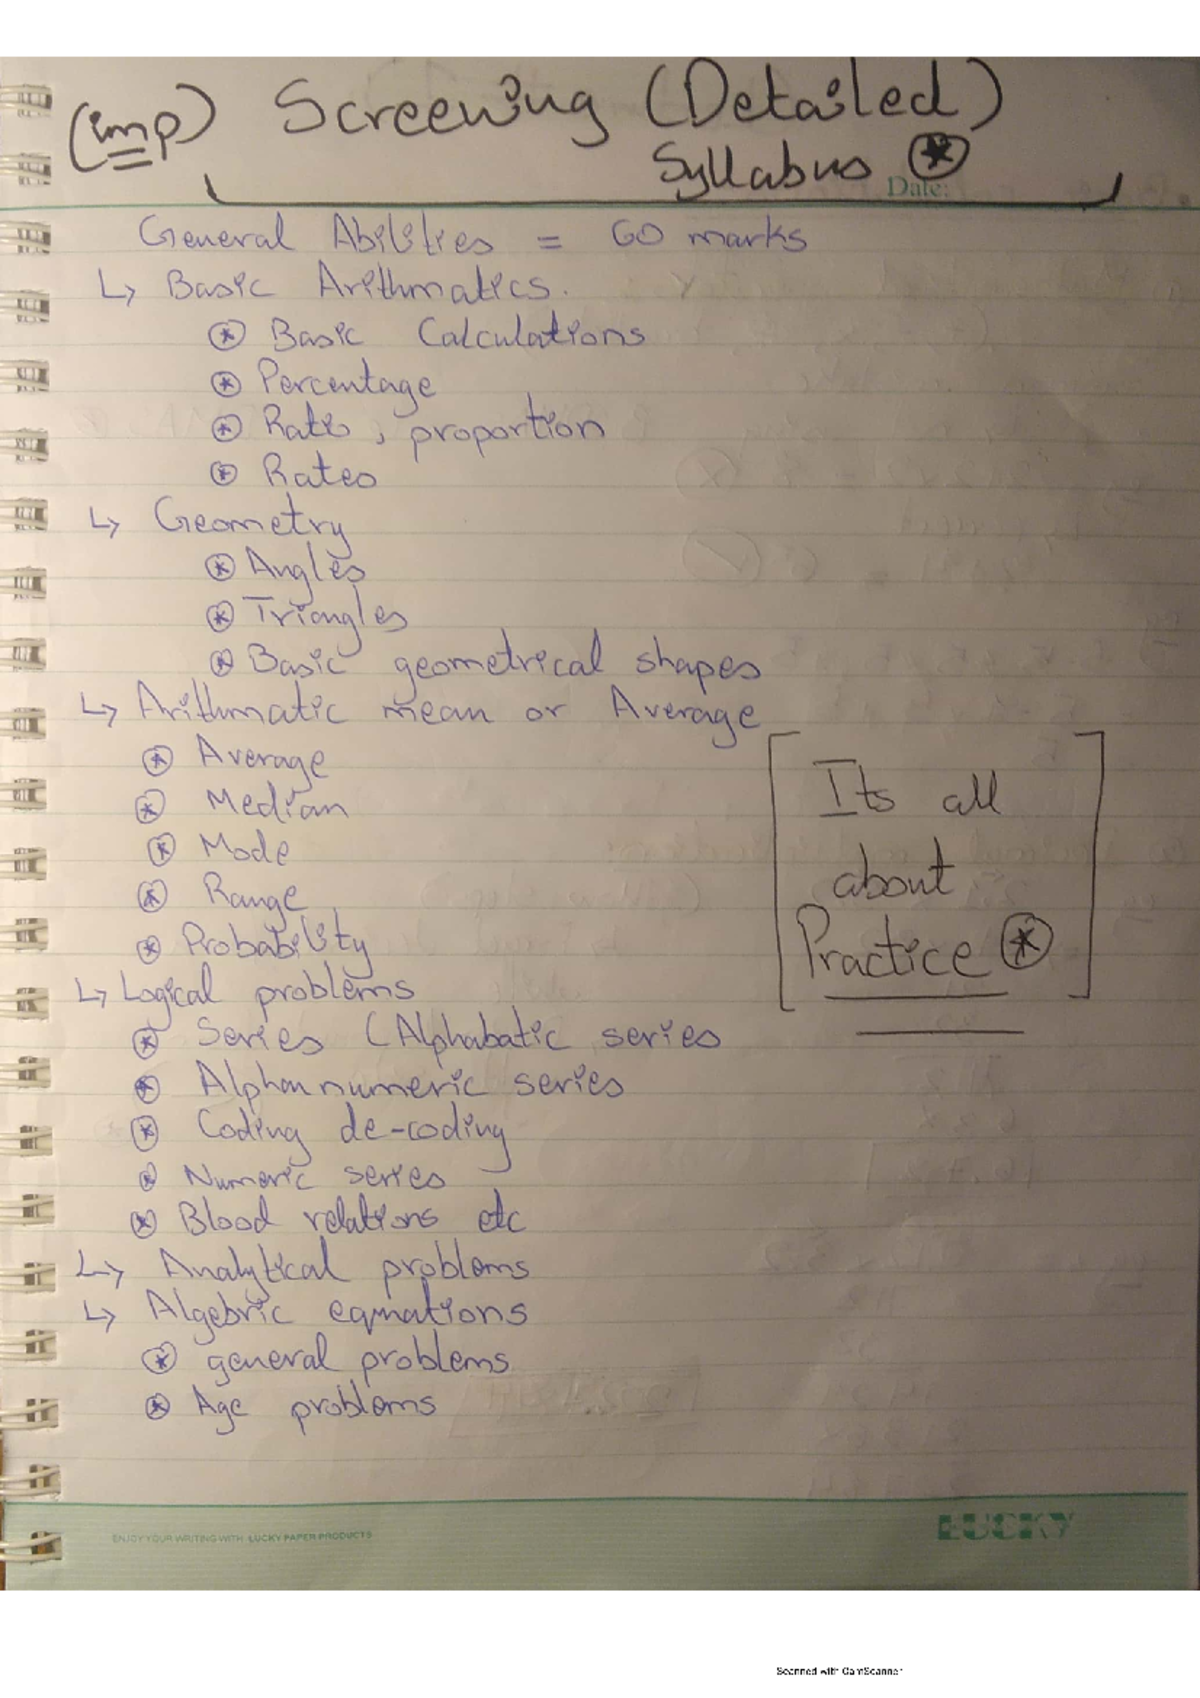 (imp) Screening (Detailed)
Syllabus
Date:
General Abilities = 60 marks
↳ Basic Arithmatics.
Basic Calculations
Percentage
Ratio, proportion
Rates
↳ Geometry
Angles
Triangles
Basic geometrical shapes
↳ Arithmatic mean or Average
Average
Median
Mode
Range
Probability
Its all
about
Practice
↳ Logical problems
Series (Alphabatic series
Alphannumeric series
Coding de-coding
Numeric series
Blood relations etc
↳ Analytical problems
↳ Algebric equations
general problems
Age problems
ENJOY YOUR WRITING WITH LUCKY PAPER PRODUCTS
LUCKY
Scanned with CamScanner